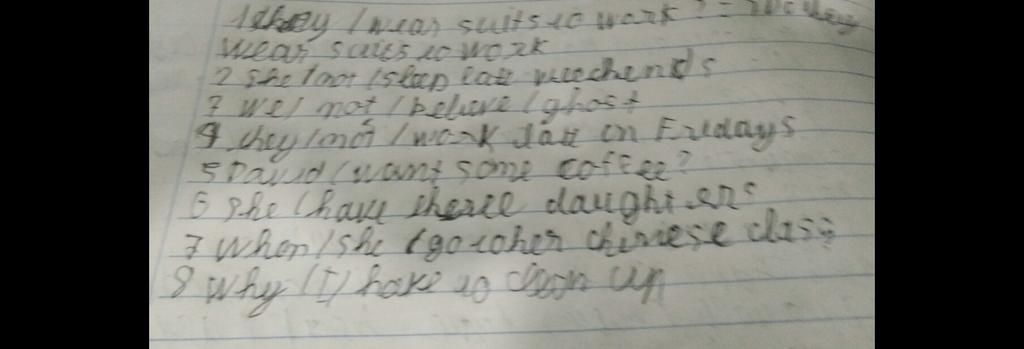 1 they / wear suits to work ? = they
wear suits to work
2 she / not / sleep late weekends
3 we / not / believe / ghost
4 they / not / work late on Fridays
5 David / want some coffee ?
6 she / have three daughters
7 when / she / go to her chinese class
8 why / I / have to clean up